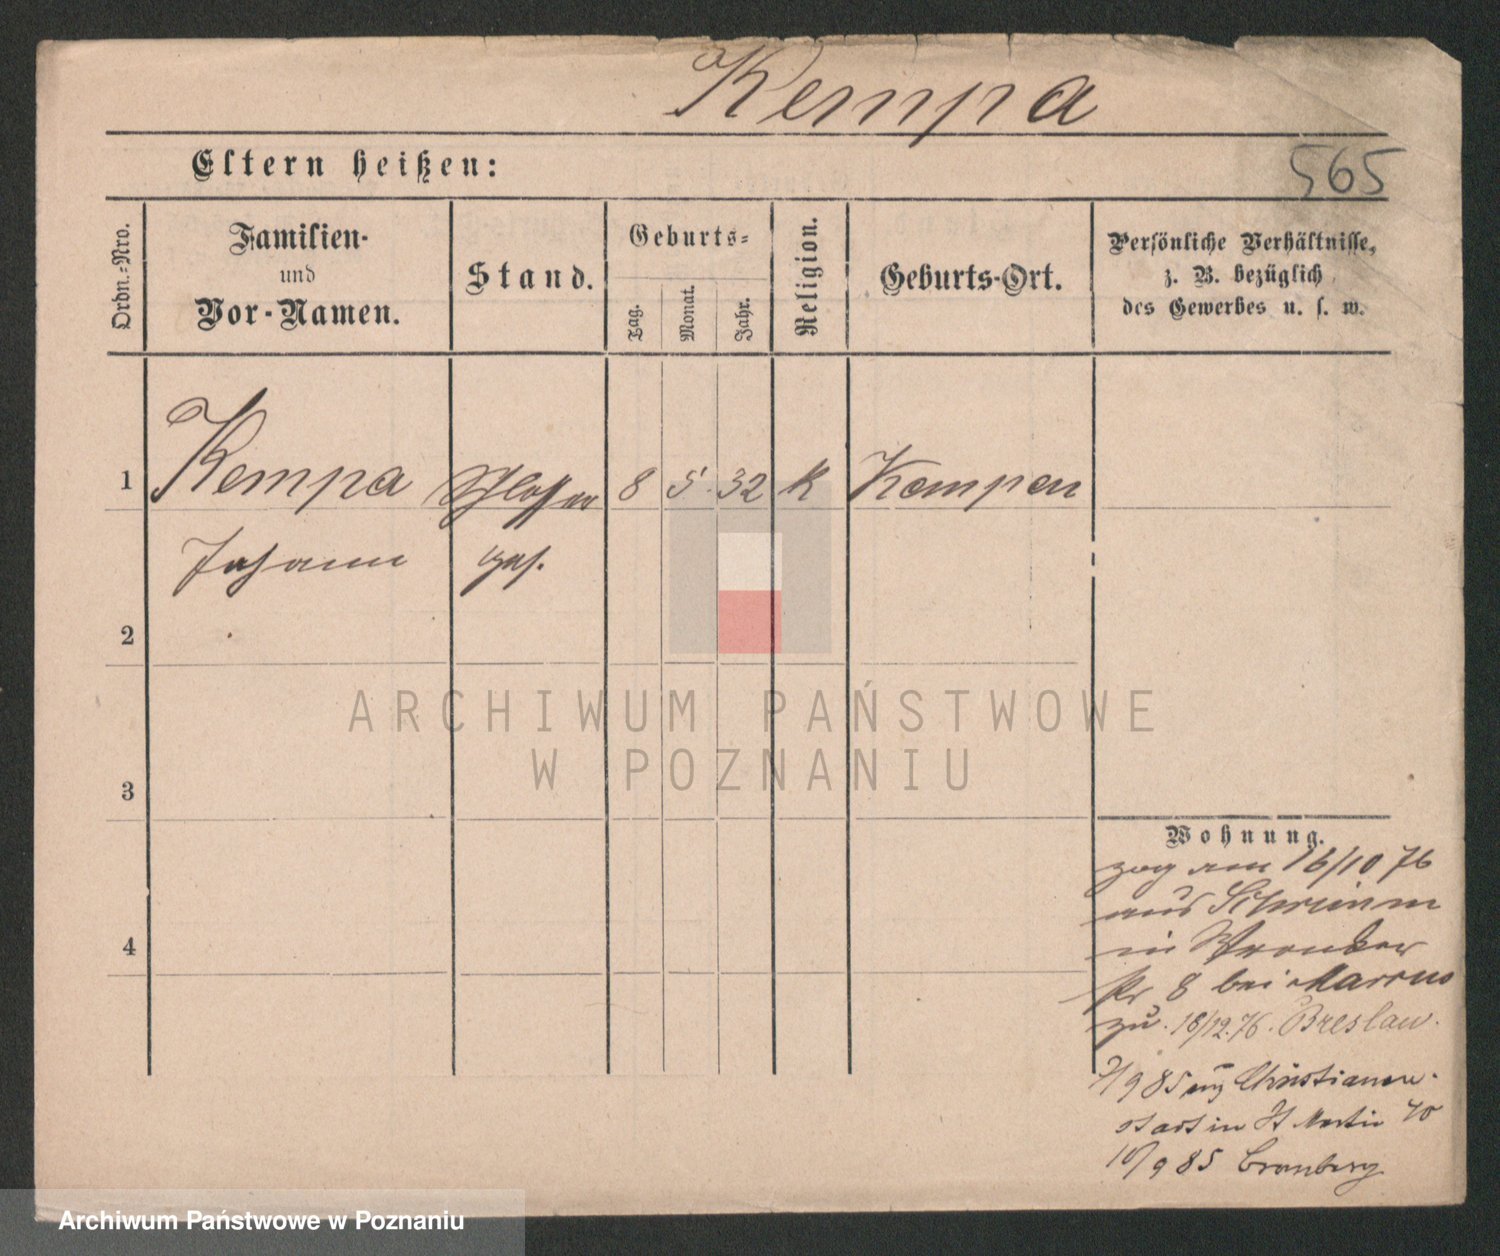 Kempa
Eltern heißen:
565
Ordn.-Nro.
Familien-
und
Vor-Namen.
Stand.
Geburts-
Tag.
Monat.
Jahr.
Religion.
Geburts-Ort.
Persönliche Verhältnisse,
z. B. bezüglich
des Gewerbes u. s. w.
1
Kempa
Schlosser
8
5
32
k
Kempen
Johann
ges.
2
3
4
Wohnung.
zog am 16/10 76
aus Schrimm
in Wronker
Str 8 bei Marcus
zu. 18/12.76. Breslau.
7/9 85 Christianen-
stadt in St Martin 40
10/9 85 Bromberg
ARCHIWUM PAŃSTWOWE
W POZNANIU
Archiwum Państwowe w Poznaniu